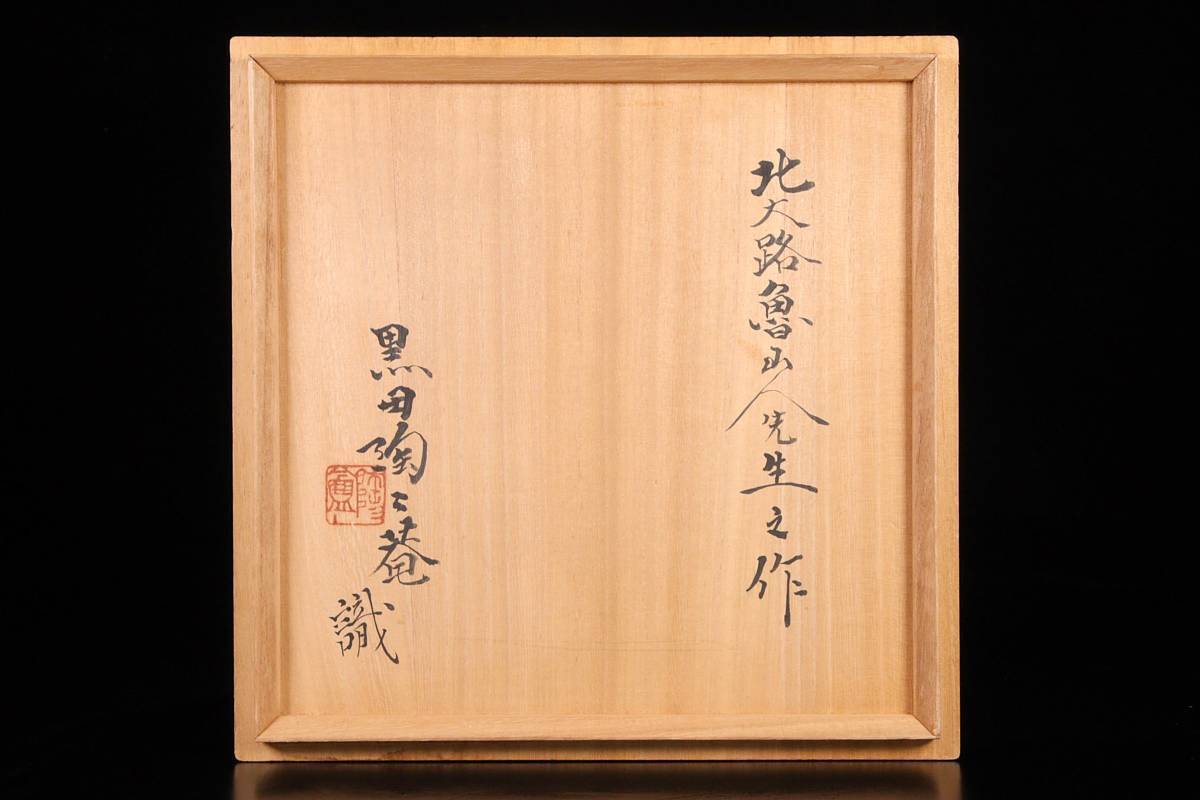 北大路魯山人先生之作
黒田陶々菴識